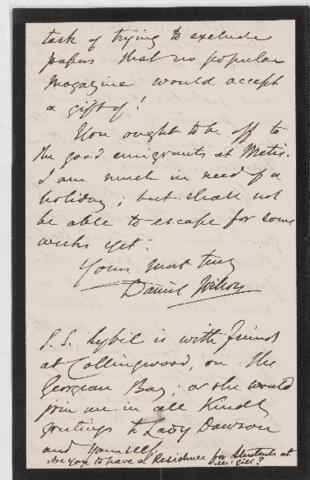 task of trying to exclude
papers that no popular
Magazine would accept
a gift of!
You ought to be off to
the good emigrants at Metis.
I am much in need of a
holiday; but shall not
be able to escape for some
weeks yet:
Yours most truly
Daniel Wilson
P.S. Sybil is with friends
at Collingwood, on the
Georgian Bay; or she would
join me in all kindly
greetings to Lady Dawson
and yourself
Are you to have a Residence for Students at
McGill?